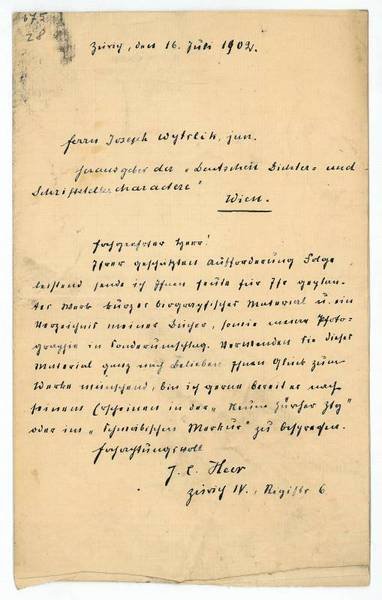 675
28
Zürich, den 16. Juli 1902.
Herrn Joseph Wytrlik, jun.
Herausgeber der „Deutschen Dichter- und
Schriftstellercharactere"
Wien.
Hochgeehrter Herr!
Ihrer geschätzten Aufforderung Folge
leistend sende ich Ihnen heute für Ihr geplan-
tes Werk kurzes biografisches Material u. ein
Verzeichnis meiner Bücher, sowie meine Photo-
graphie in Sonderumschlag. Verwenden Sie dieses
Material ganz nach Belieben. Ihnen Glück zum
Werke wünschend, bin ich gerne bereit es nach
seinem Erscheinen in der „Neuen Zürcher Ztg"
oder im „Schwäbischen Merkur" zu besprechen.
Hochachtungsvoll
J. C. Heer
Zürich IV., 6